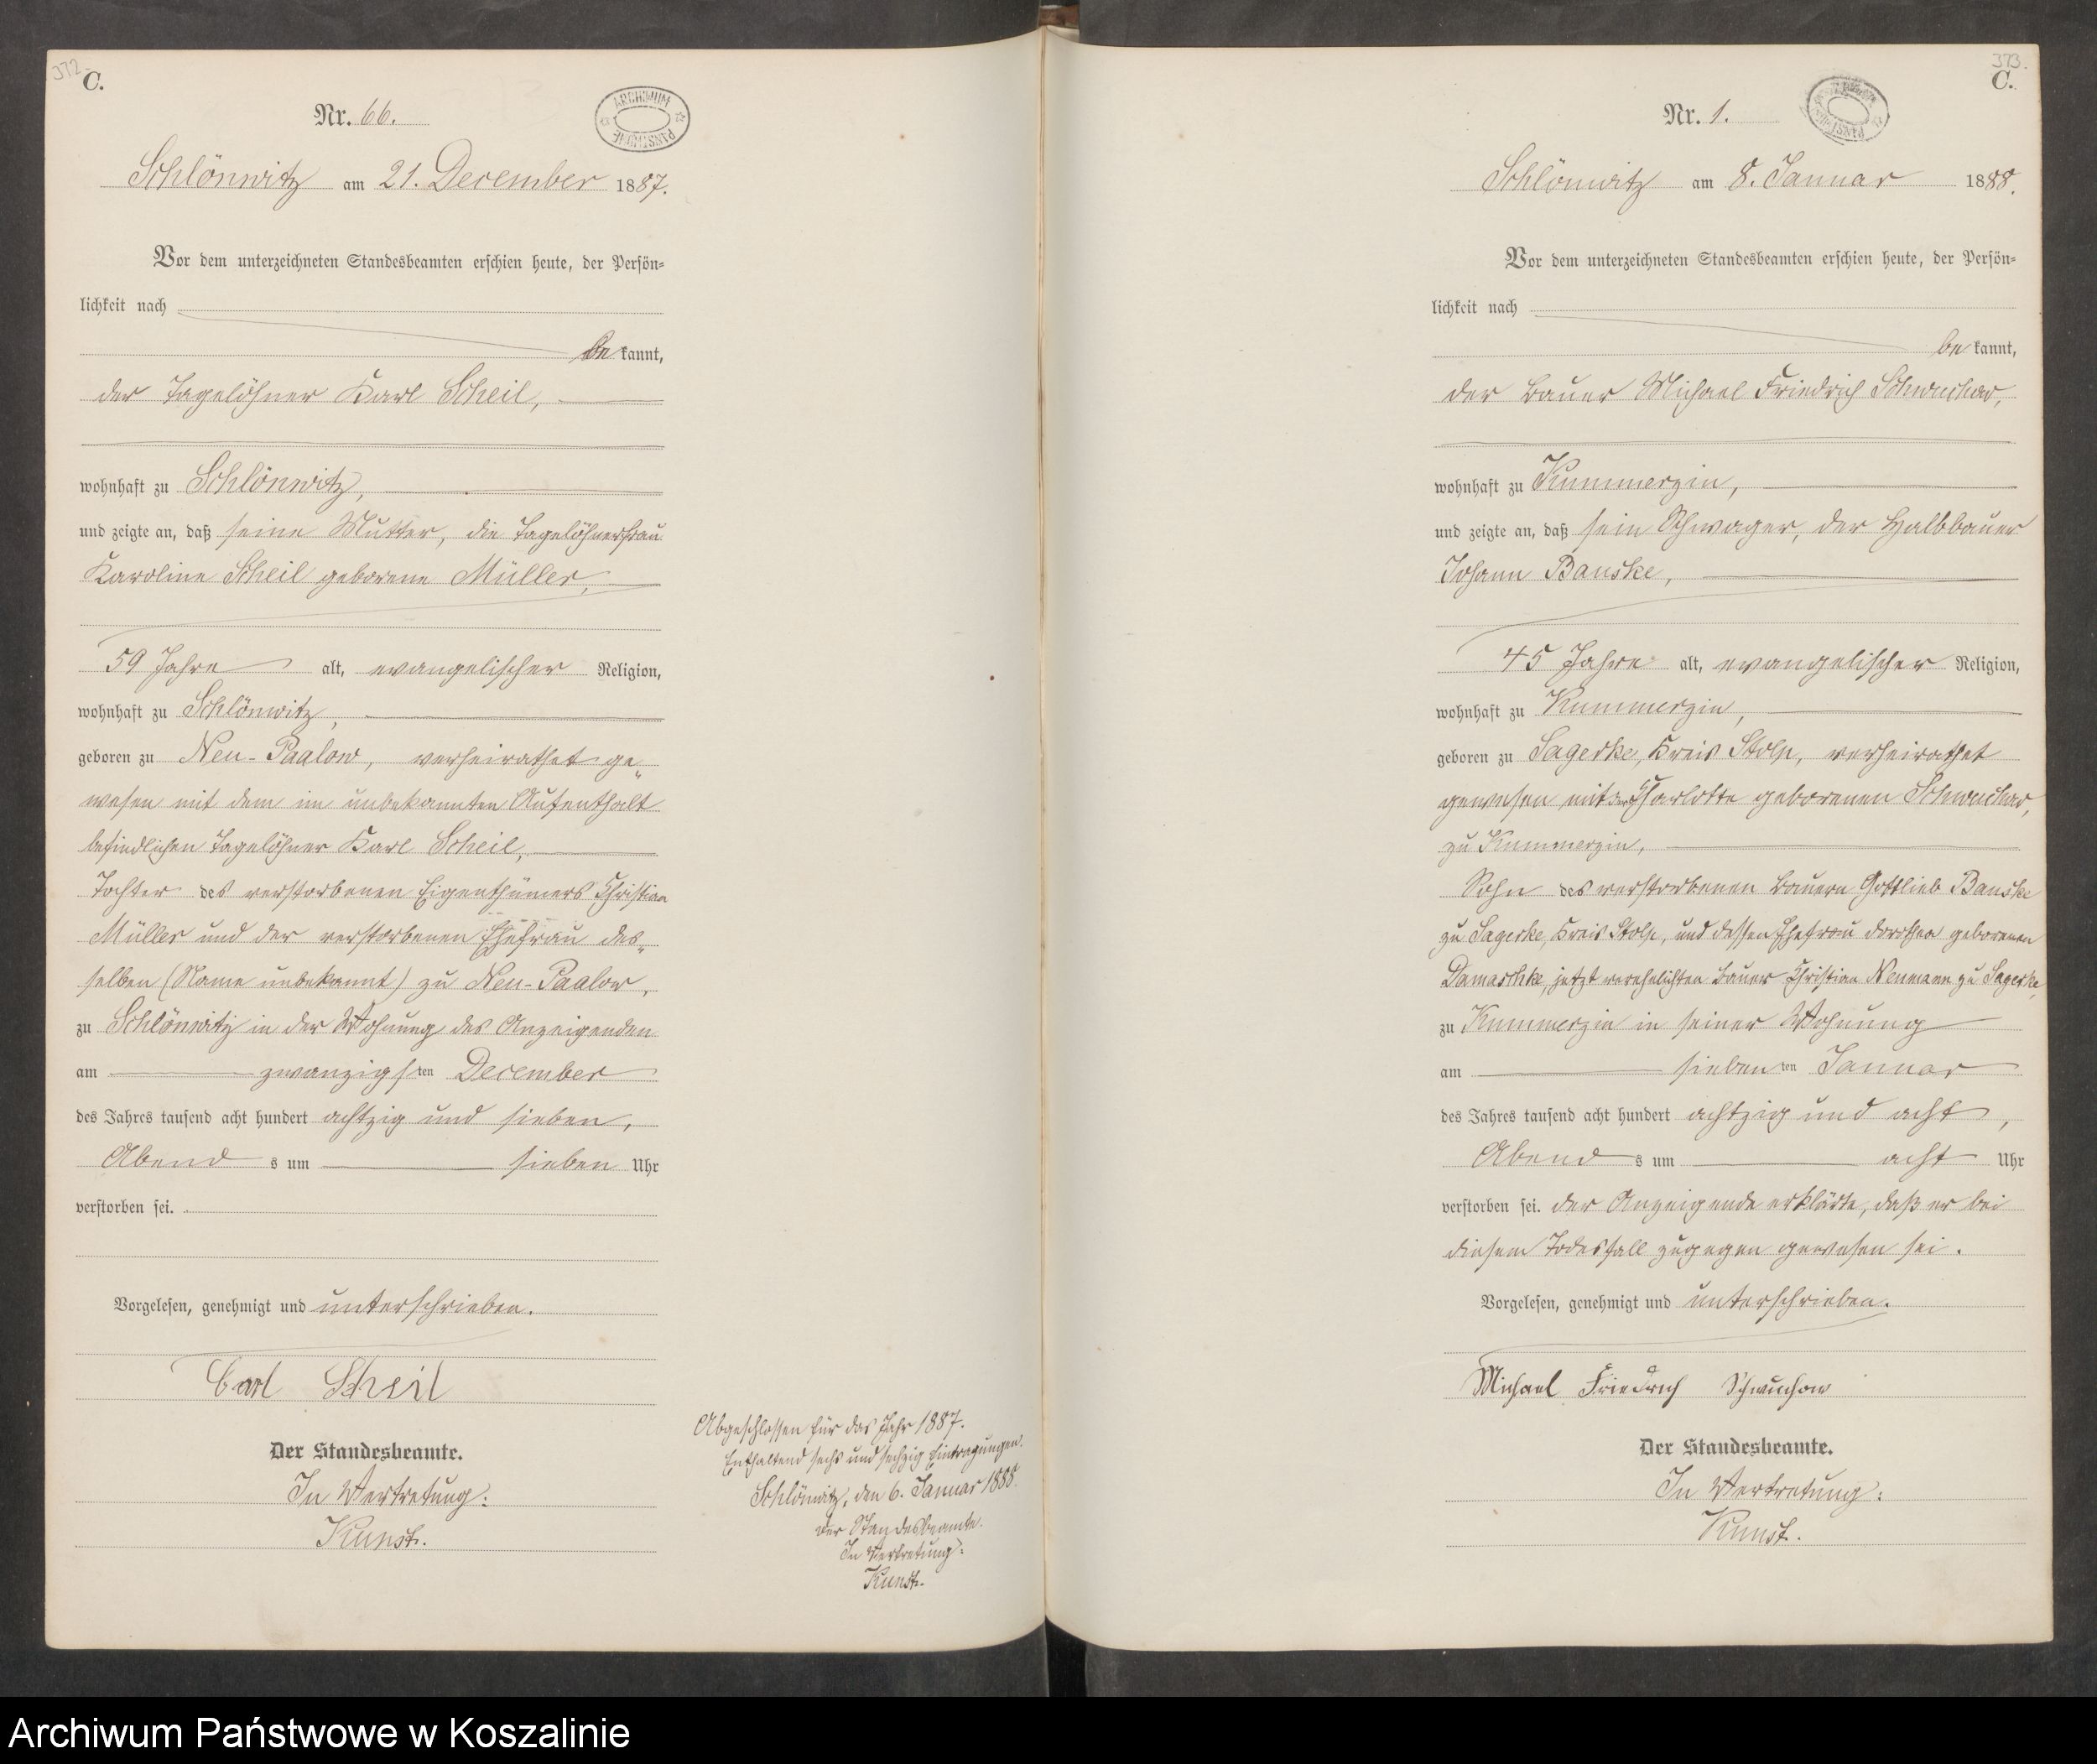 372.
C.
Nr. 66.
ARCHIWUM PAŃSTWOWE
Schlönwitz am 21. December 1887.
Vor dem unterzeichneten Standesbeamten erschien heute, der Persön-
lichkeit nach
be kannt,
der Tagelöhner Karl Scheil,
wohnhaft zu Schlönwitz,
und zeigte an, daß seine Mutter, die Tagelöhnerfrau
Karoline Scheil geborene Müller,
59 Jahre alt, evangelischer Religion,
wohnhaft zu Schlönwitz,
geboren zu Neu-Paalow, verheirathet ge-
wesen mit dem im unbekannten Aufenthalt
befindlichen Tagelöhner Karl Scheil,
Tochter des verstorbenen Eigenthümers Christian
Müller und der verstorbenen Ehefrau des-
selben (Name unbekannt) zu Neu-Paalow,
zu Schlönwitz in der Wohnung des Anzeigenden
am zwanzigsten December
des Jahres tausend acht hundert achtzig und sieben,
Abend s um sieben Uhr
verstorben sei.
Vorgelesen, genehmigt und unterschrieben.
Carl Scheil
Der Standesbeamte.
In Vertretung:
Kunst.
Abgeschlossen für das Jahr 1887.
Enthaltend sechs und sechzig Eintragungen.
Schlönwitz, den 6. Januar 1888.
Der Standesbeamte.
In Vertretung:
Kunst.
373.
C.
Nr. 1.
Schlönwitz am 8. Januar 1888.
Vor dem unterzeichneten Standesbeamten erschien heute, der Persön-
lichkeit nach
be kannt,
der Bauer Michael Friedrich Schwuchow,
wohnhaft zu Kummerzin,
und zeigte an, daß sein Schwager, der Halbbauer
Johann Banske,
45 Jahre alt, evangelischer Religion,
wohnhaft zu Kummerzin,
geboren zu Sagerke, Kreis Stolp, verheirathet
gewesen mit der Charlotte geborenen Schwuchow,
zu Kummerzin,
Sohn des verstorbenen Bauern Gottlieb Banske
zu Sagerke, Kreis Stolp, und dessen Ehefrau Dorothea geborenen
Damaschke, jetzt verehelichten Bauer Christian Neumann zu Sagerke,
zu Kummerzin in seiner Wohnung
am siebenten Januar
des Jahres tausend acht hundert achtzig und acht,
Abend s um acht Uhr
verstorben sei. Der Anzeigende erklärte, daß er bei
diesem Todesfall zugegen gewesen sei.
Vorgelesen, genehmigt und unterschrieben.
Michael Friedrich Schwuchow
Der Standesbeamte.
In Vertretung:
Kunst.
Archiwum Państwowe w Koszalinie